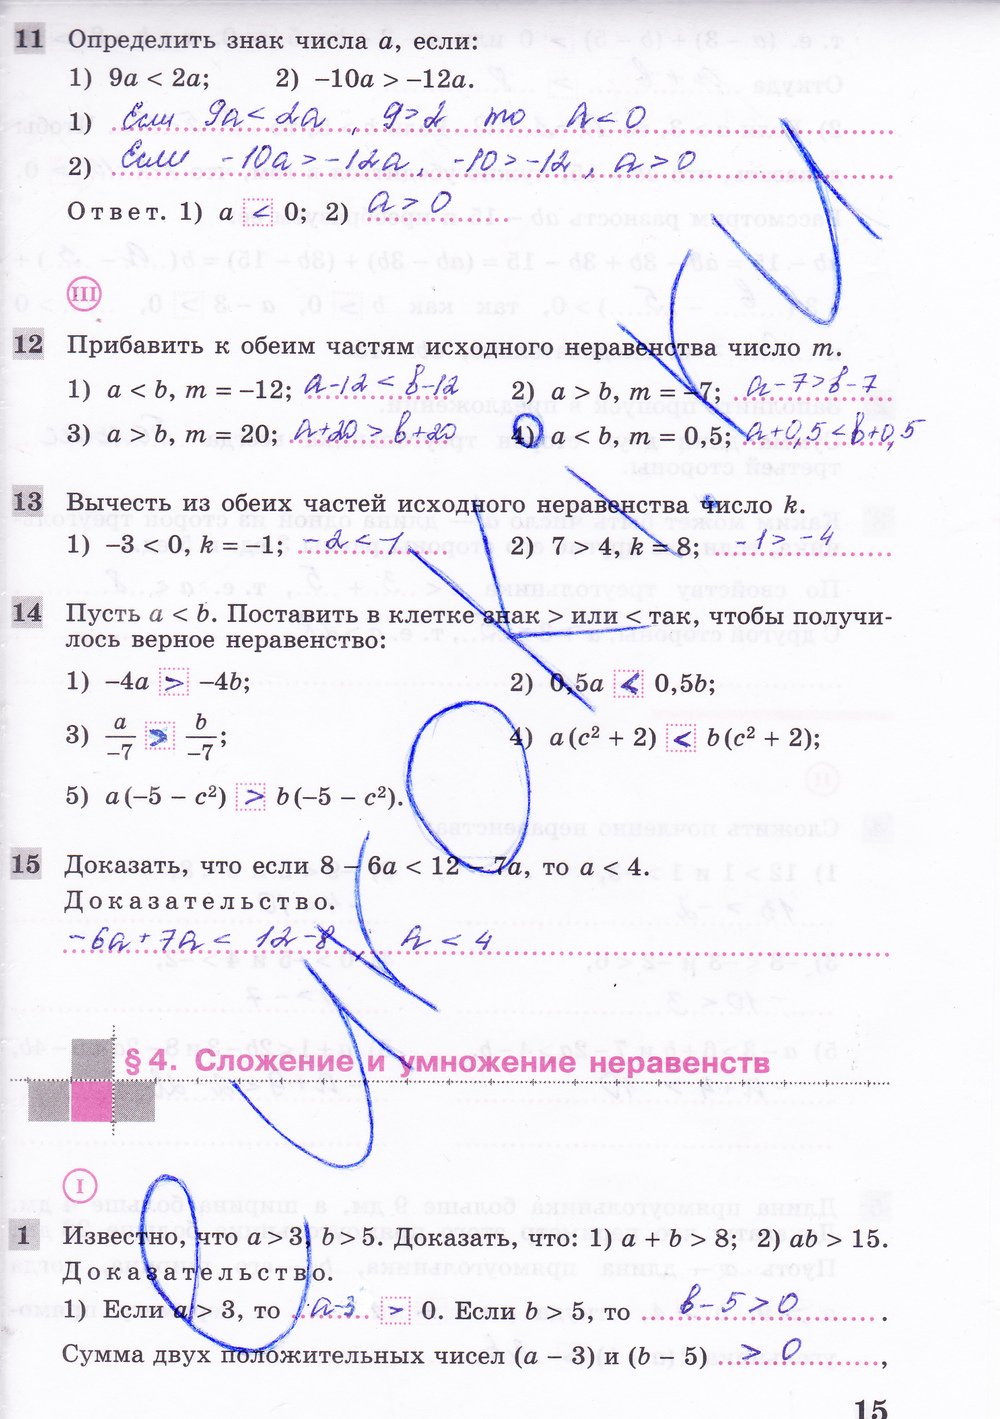 11 Определить знак числа a, если:
1) 9a < 2a; 2) –10a > –12a.
1) Если 9a < 2a, 9 > 2 то a < 0
2) Если -10a > -12a, -10 > -12, a > 0
Ответ. 1) a < 0; 2) a > 0
III
12 Прибавить к обеим частям исходного неравенства число m.
1) a < b, m = –12; a-12 < b-12 2) a > b, m = –7; a-7 > b-7
3) a > b, m = 20; a+20 > b+20 4) a < b, m = 0,5; a+0,5 < b+0,5
13 Вычесть из обеих частей исходного неравенства число k.
1) –3 < 0, k = –1; -2 < -1 2) 7 > 4, k = 8; -1 > -4
14 Пусть a < b. Поставить в клетке знак > или < так, чтобы получи-
лось верное неравенство:
1) –4a > –4b; 2) 0,5a < 0,5b;
3) a/–7 > b/–7; 4) a(c² + 2) < b(c² + 2);
5) a(–5 – c²) > b(–5 – c²).
15 Доказать, что если 8 – 6a < 12 – 7a, то a < 4.
Доказательство.
-6a+7a < 12-8, a < 4
§ 4. Сложение и умножение неравенств
I
1 Известно, что a > 3, b > 5. Доказать, что: 1) a + b > 8; 2) ab > 15.
Доказательство.
1) Если a > 3, то a-3 > 0. Если b > 5, то b-5 > 0.
Сумма двух положительных чисел (a – 3) и (b – 5) > 0,
15